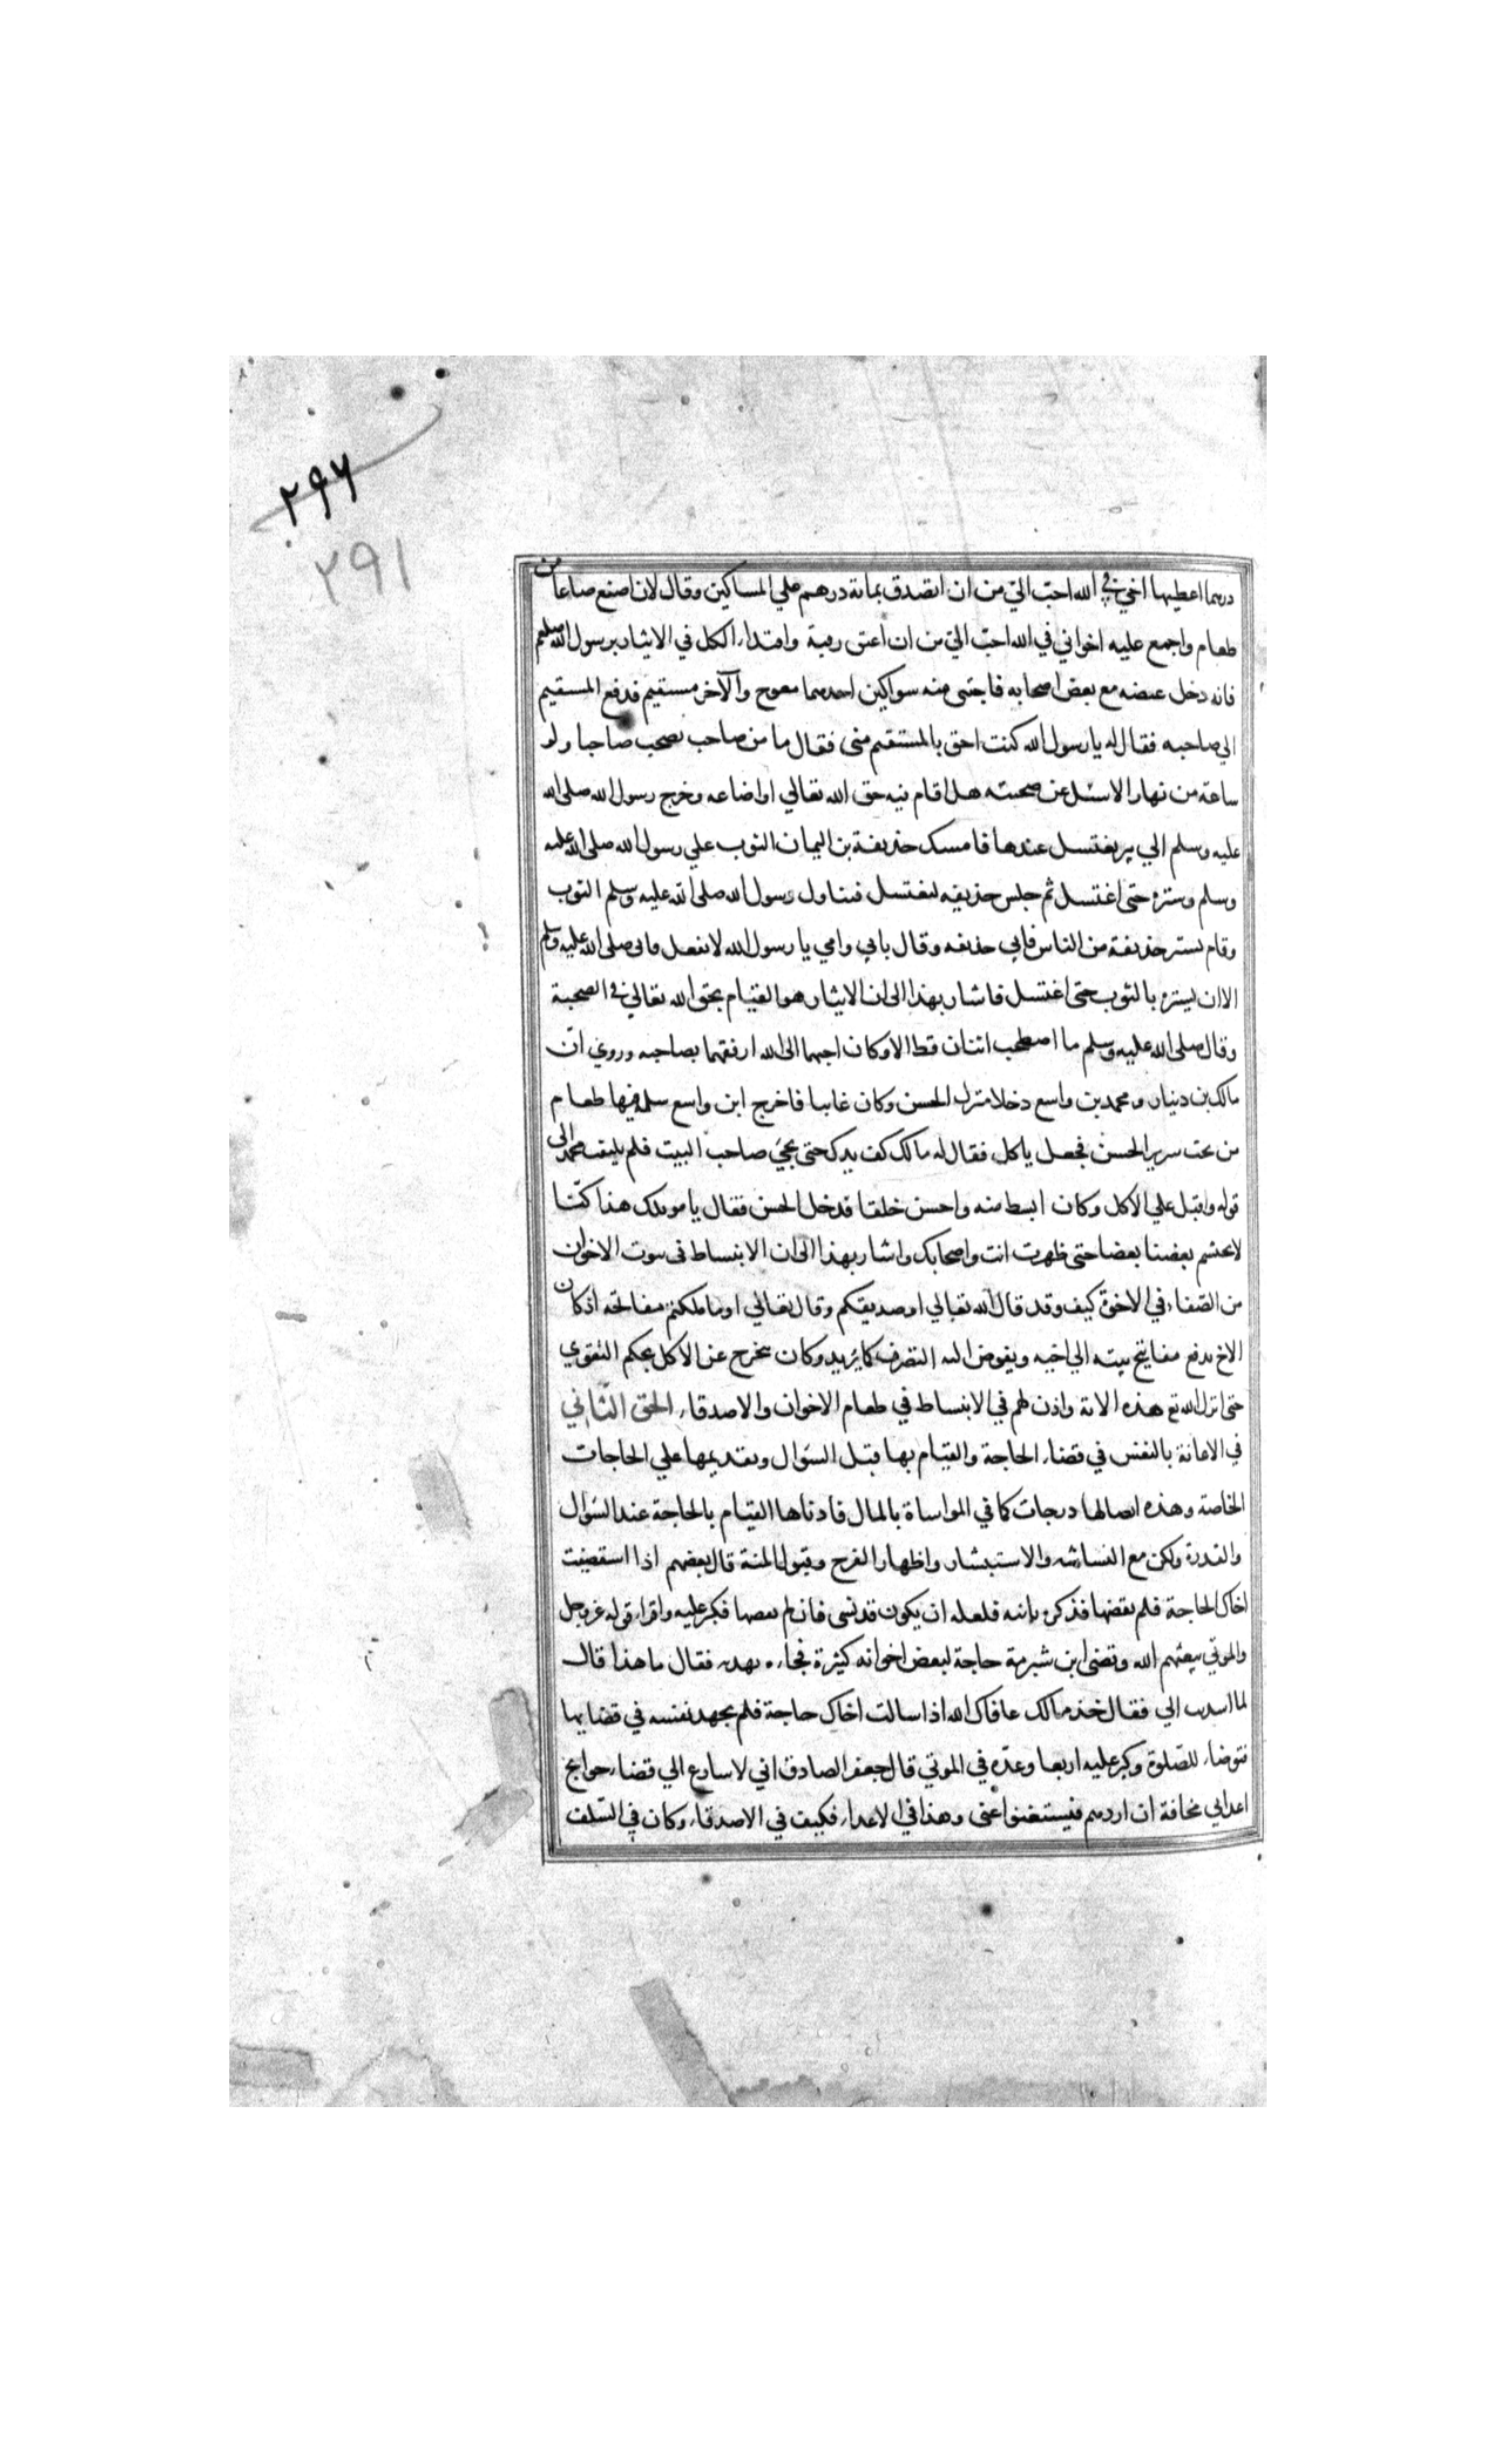 ٢٩٦
٢٩١
درهما اعطيها اخي في الله احبّ اليّ من ان اتصدق بمائة درهم علي المساكين وقال لان اصنع صاعا من
طعام واجمع عليه اخواني في الله احبّ اليّ من ان اعتق رقبة واقتداء الكل في الايثار برسول الله صلعم
فانه دخل غيضه مع بعض اصحابه فاجتنى منه سواكين احدهما معوج والآخر مستقيم فدفع المستقيم
الي صاحبه فقال له يا رسول الله كنت احق بالمستقيم منى فقال ما من صاحب يصحب صاحبا ولو
ساعة من نهار الا سئل عن صحبته هل اقام فيه حق الله تعالي او اضاعه وخرج رسول الله صلى الله
عليه وسلم الي بير يغتسل عندها فامسك حذيفة بن اليمان الثوب علي رسول الله صلى الله عليه
وسلم وستره حتى اغتسل ثم جلس حذيفه ليغتسل فتناول رسول الله صلى الله عليه وسلم الثوب
وقام يستر حذيفة من الناس فابي حذيفه وقال بابي وامي يا رسول الله لا تفعل فابى صلى الله عليه وسلم
الا ان يستره بالثوب حتى اغتسل فاشار بهذا الى ان الايثار هو القيام بحق الله تعالي في الصحبة
وقال صلى الله عليه وسلم ما اصطحب اثنان قط الا وكان احبهما الى الله ارفقهما بصاحبه وروي انّ
مالك بن دينار ومحمد بن واسع دخلا منزل الحسن وكان غايبا فاخرج ابن واسع سلة فيها طعام
من تحت سرير الحسن فجعل ياكل فقال له مالك كف يدك حتى يجيَ صاحب البيت فلم يلتفت محمد الى
قوله واقبل علي الاكل وكان ابسط منه واحسن خلقا فدخل الحسن فقال يا مويلك هذا كنّا
لا يحتشم بعضنا بعضا حتى ظهرت انت واصحابك واشار بهذا الى ان الانبساط في بيوت الاخوان
من الصّفاء في الاخوّة كيف وقد قال الله تعالي او صديقكم وقال تعالي او ما ملكتم مفاتحه اذ كان
الاخ يدفع مفاتيح بيته الي اخيه ويفوض اليه التصرف كما يريد وكان يتحرج عن الاكل بحكم التقوي
حتى انزل الله تع هذه الاية واذن لهم في الانبساط في طعام الاخوان والاصدقاء الحق الثّاني
في الاعانة بالنفس في قضاء الحاجة والقيام بها قبل السّوال وتقديمها علي الحاجات
الخاصة وهذه ايضا لها درجات كما في المواساة بالمال فادناها القيام بالحاجة عند السّوال
والقدرة ولكن مع البشاشه والاستبشار واظهار الفرح وقبول المنة قال بعضهم اذا استقضيت
اخاك الحاجة فلم يقضها فذكره ثانيه فلعله ان يكون قد نسى فان لم يقضها فكبر عليه واقراء قوله عز وجل
والموتي يبعثهم الله وقضى ابن شبرمة حاجة لبعض اخوانه كثيرة فجاءه بهديه فقال ما هذا قال
لما اسديت الي فقال خذ مالك عافاك الله اذا سالت اخاك حاجة فلم يجهد نفسه في قضايها
فتوضاء للصّلوة وكبر عليه اربعا وعدّه في الموتي قال جعفر الصادق اني لاسارع الي قضاء حوايج
اعدايي مخافة ان اردهم فيستغنوا عنى وهذا في الاعداء فكيف في الاصدقاء وكان في السّلف